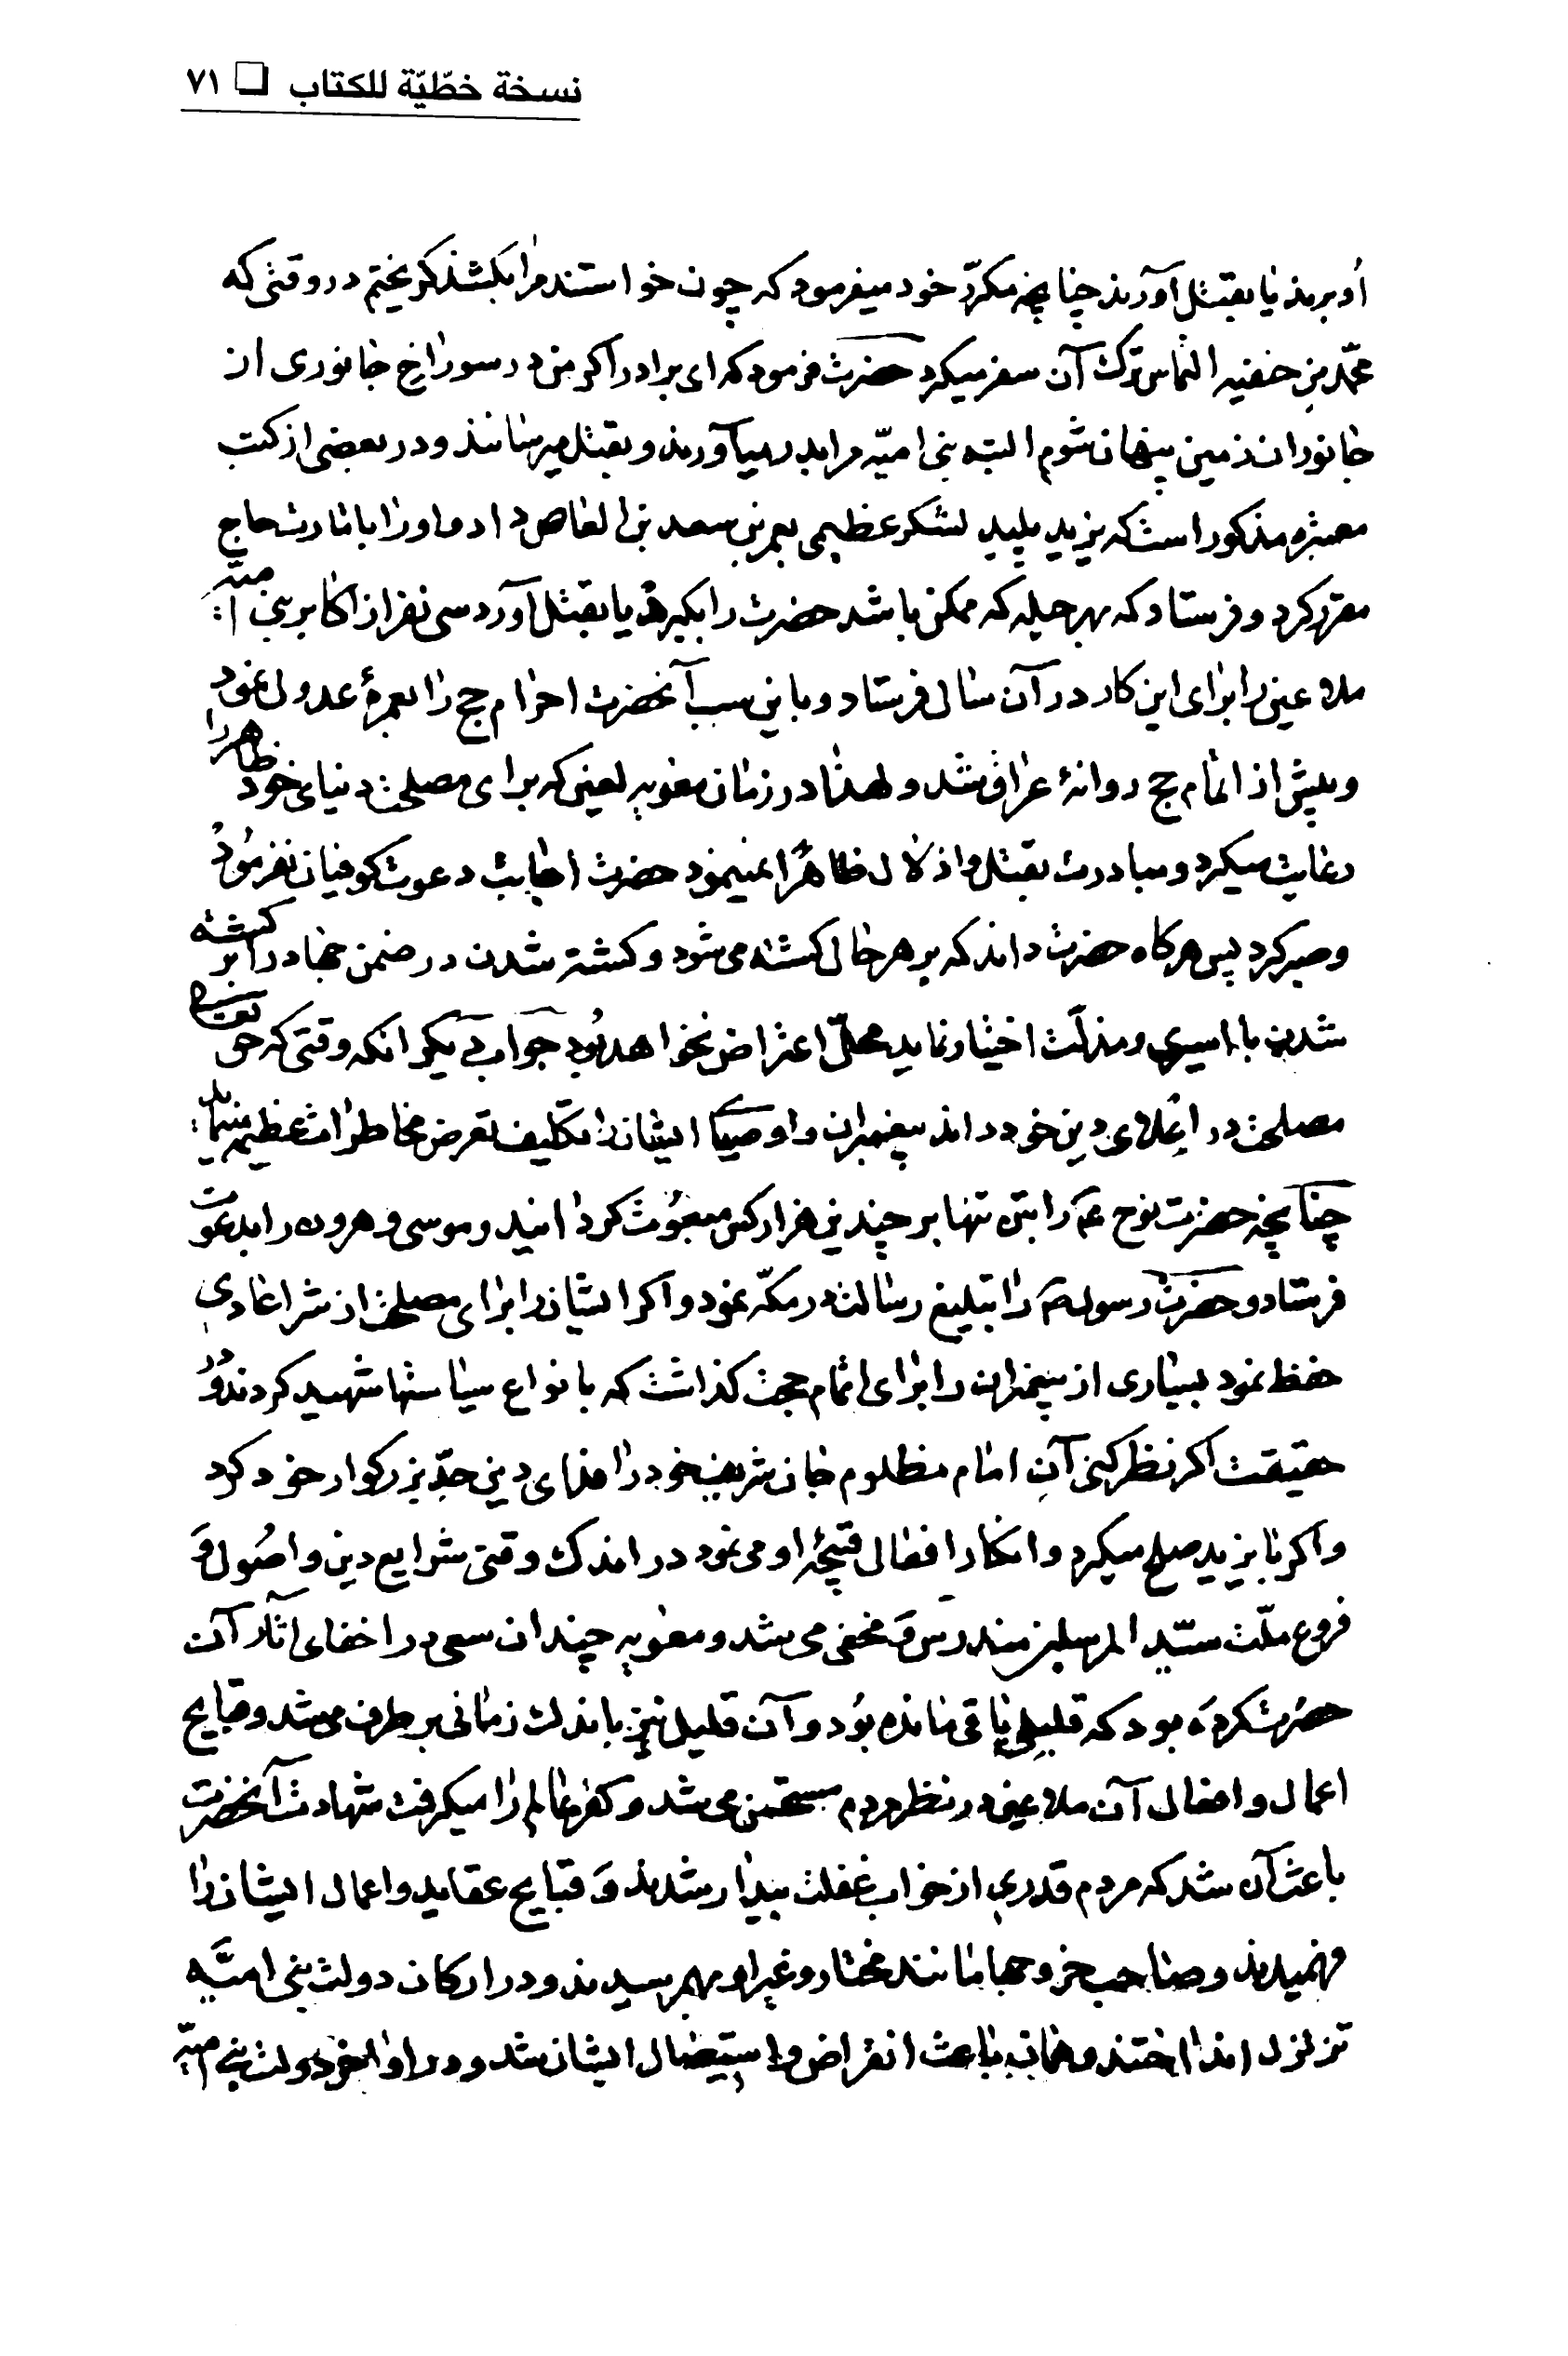 نسخة خطّيّة للكتاب □ ٧١
او برند یا بقتل آورند چنانچه مکرّر خود میفرمود که چون خواستند مرا بکشند کریختم در وقتی که
محمّد بن حنفیه التماس ترک آن سفر میکرد حضرت فرمود که ای برادر اکر من در سوراخ جانوری از
جانوران زمین پنهان شوم البته بنی امیّه مرا بدر میآورند و بقتل میرسانند و در بعضی از کتب
معتبره مذکور است که یزید پلید لشکر عظیمی بعمر بن سعد بن العاص داد و او را بامارت حاج
مقرر کرد و فرستاد که بهر حیله که ممکن باشد حضرت را بکیرد یا بقتل آورد سی نفر از اکابر بنی امیّه
ملاعین را برای این کار در آن سال فرستاد و باین سبب آنحضرت احرام حج را بعمرهٔ عدول نمود
و پیش از اتمام حج روانهٔ عراق شد و لهذا در زمان معویه لعین که برای مصلحت دنیای خود ظاهر را
رعایت میکرد و مبادرت بقتل و اذلال ظاهرا نمینمود حضرت اجابت دعوت کوفیان نفرمود
و صبر کرد پس هرکاه حضرت داند که بر هر حال کشته می شود و کشته شدن در ضمن جهاد را بر کشته
شدن با اسیری و مذلّت اختیار نماید محلّ اعتراض نخواهد بود جواب دیکر انکه وقتی که حق تعالی
مصلحت در اعلای دین خود داند پیغمبران و اوصیا ایشان را تکلیف تعرض مخاطرات عظیم مینماید
چنانچه حضرت نوح ع را بتن تنها بر چندین هزار کس مبعوث کردانید و موسی و هرون را بدعوت
فرستاد و حضرت رسول ص را تبلیغ رسالت در مکّه نمود و اکر ایشان را برای مصلحت از شر اعادی
حفظ نمود بسیاری از پیغمبران را برای اتمام حجت کذاشت که بانواع سیاستها شهید کردند و در
حقیقت اکر نظر کنی آن امام مظلوم جان شریف خود را فدای دین جدّ بزرکوار خود کرد
و اکر با یزید صلح میکرد و انکار افعال قبیحهٔ او می نمود در اندک وقتی شرایع دین و اصول و
فروع ملّت سیّد المرسلین مندرس و مخفی می شد و معویه چندان سعی در اخفای آثار آن
حضرت کرده بود که قلیلی باقی مانده بود و آن قلیل نیز باندک زمانی بر طرف می شد و قبایح
اعمال و افعال آن ملاعین در نظر مردم مستحسن می شد و کفر عالم را میکرفت شهادت آنحضرت
باعث آن شد که مردم قدری از خواب غفلت بیدار شدند و قبایح عقاید و اعمال ایشان را
فهمیدند و صاحب خروجها مانند مختار و غیر او بهم رسیدند و در ارکان دولت بنی امیّه
تزلزل انداختند و همان باعث انقراض و استیصال ایشان شد و در اواخر دولت بنی امیّه